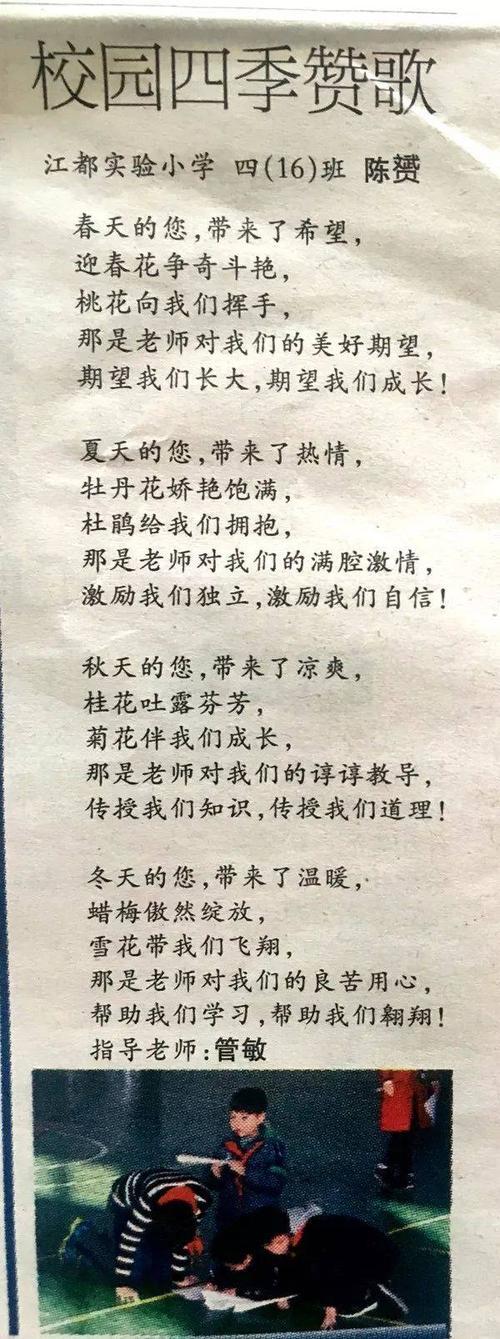 校园四季赞歌
江都实验小学 四(16)班 陈赟
春天的您,带来了希望,
迎春花争奇斗艳,
桃花向我们挥手,
那是老师对我们的美好期望,
期望我们长大,期望我们成长!
夏天的您,带来了热情,
牡丹花娇艳饱满,
杜鹃给我们拥抱,
那是老师对我们的满腔激情,
激励我们独立,激励我们自信!
秋天的您,带来了凉爽,
桂花吐露芬芳,
菊花伴我们成长,
那是老师对我们的谆谆教导,
传授我们知识,传授我们道理!
冬天的您,带来了温暖,
蜡梅傲然绽放,
雪花带我们飞翔,
那是老师对我们的良苦用心,
帮助我们学习,帮助我们翱翔!
指导老师:管敏